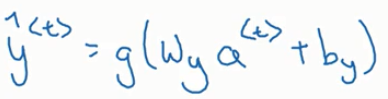 ŷ^{<t>} = g(W_y a^{<t>} + b_y)